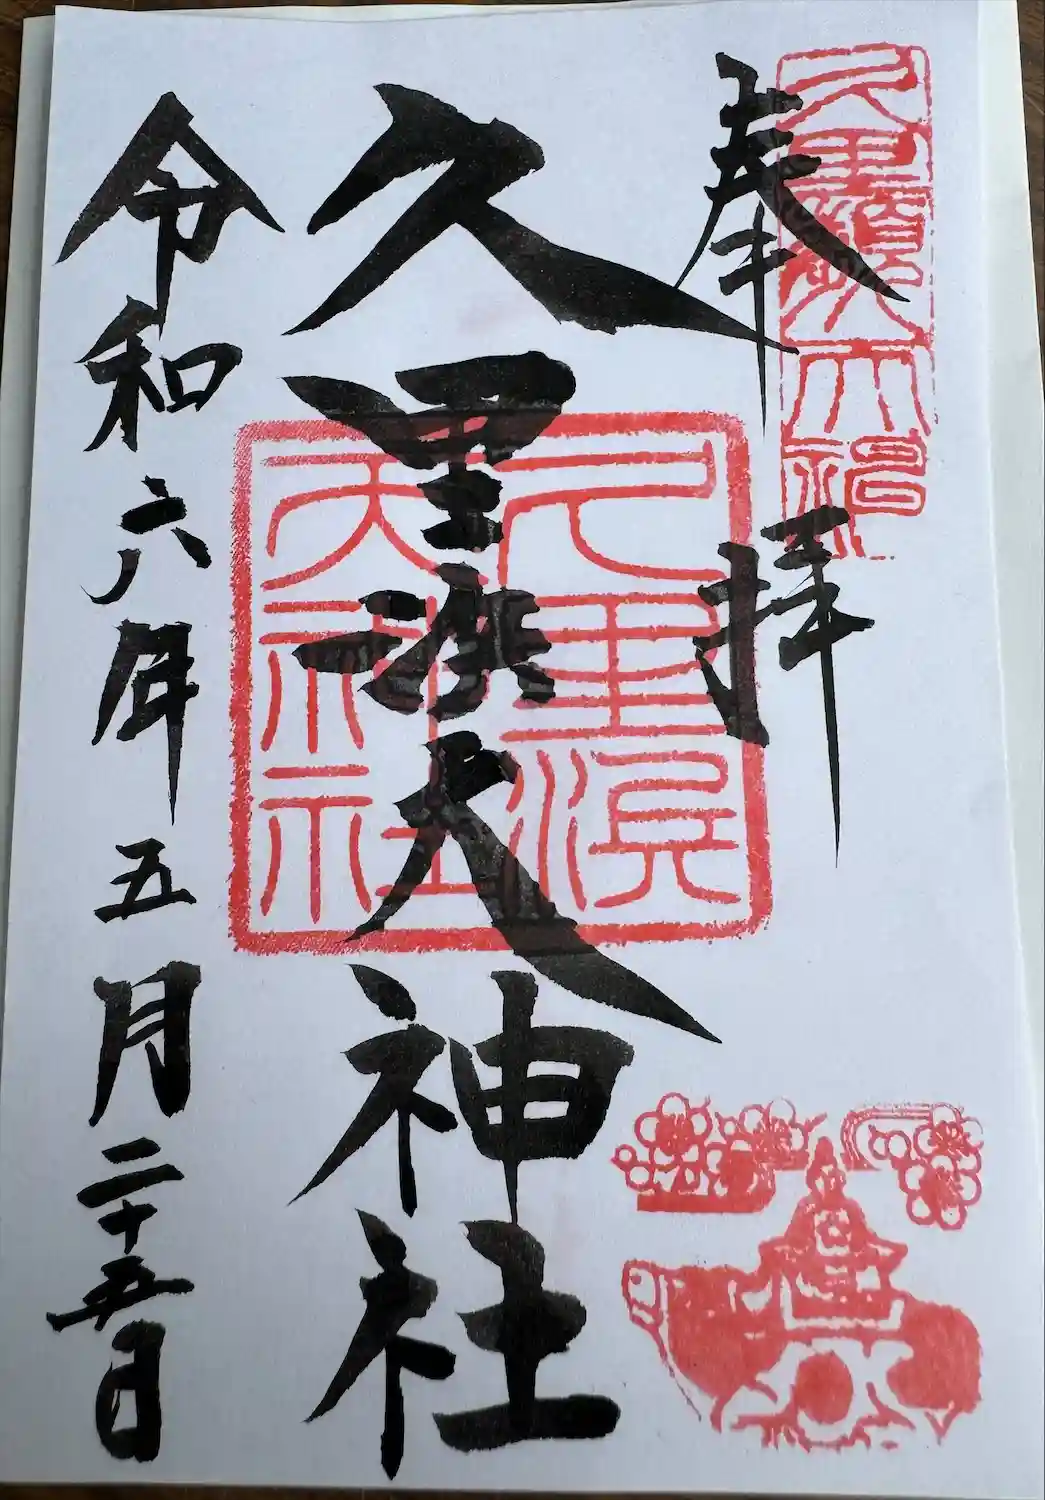 奉拝
久里浜天神社
久里浜
天神社
令和六年五月二十五日